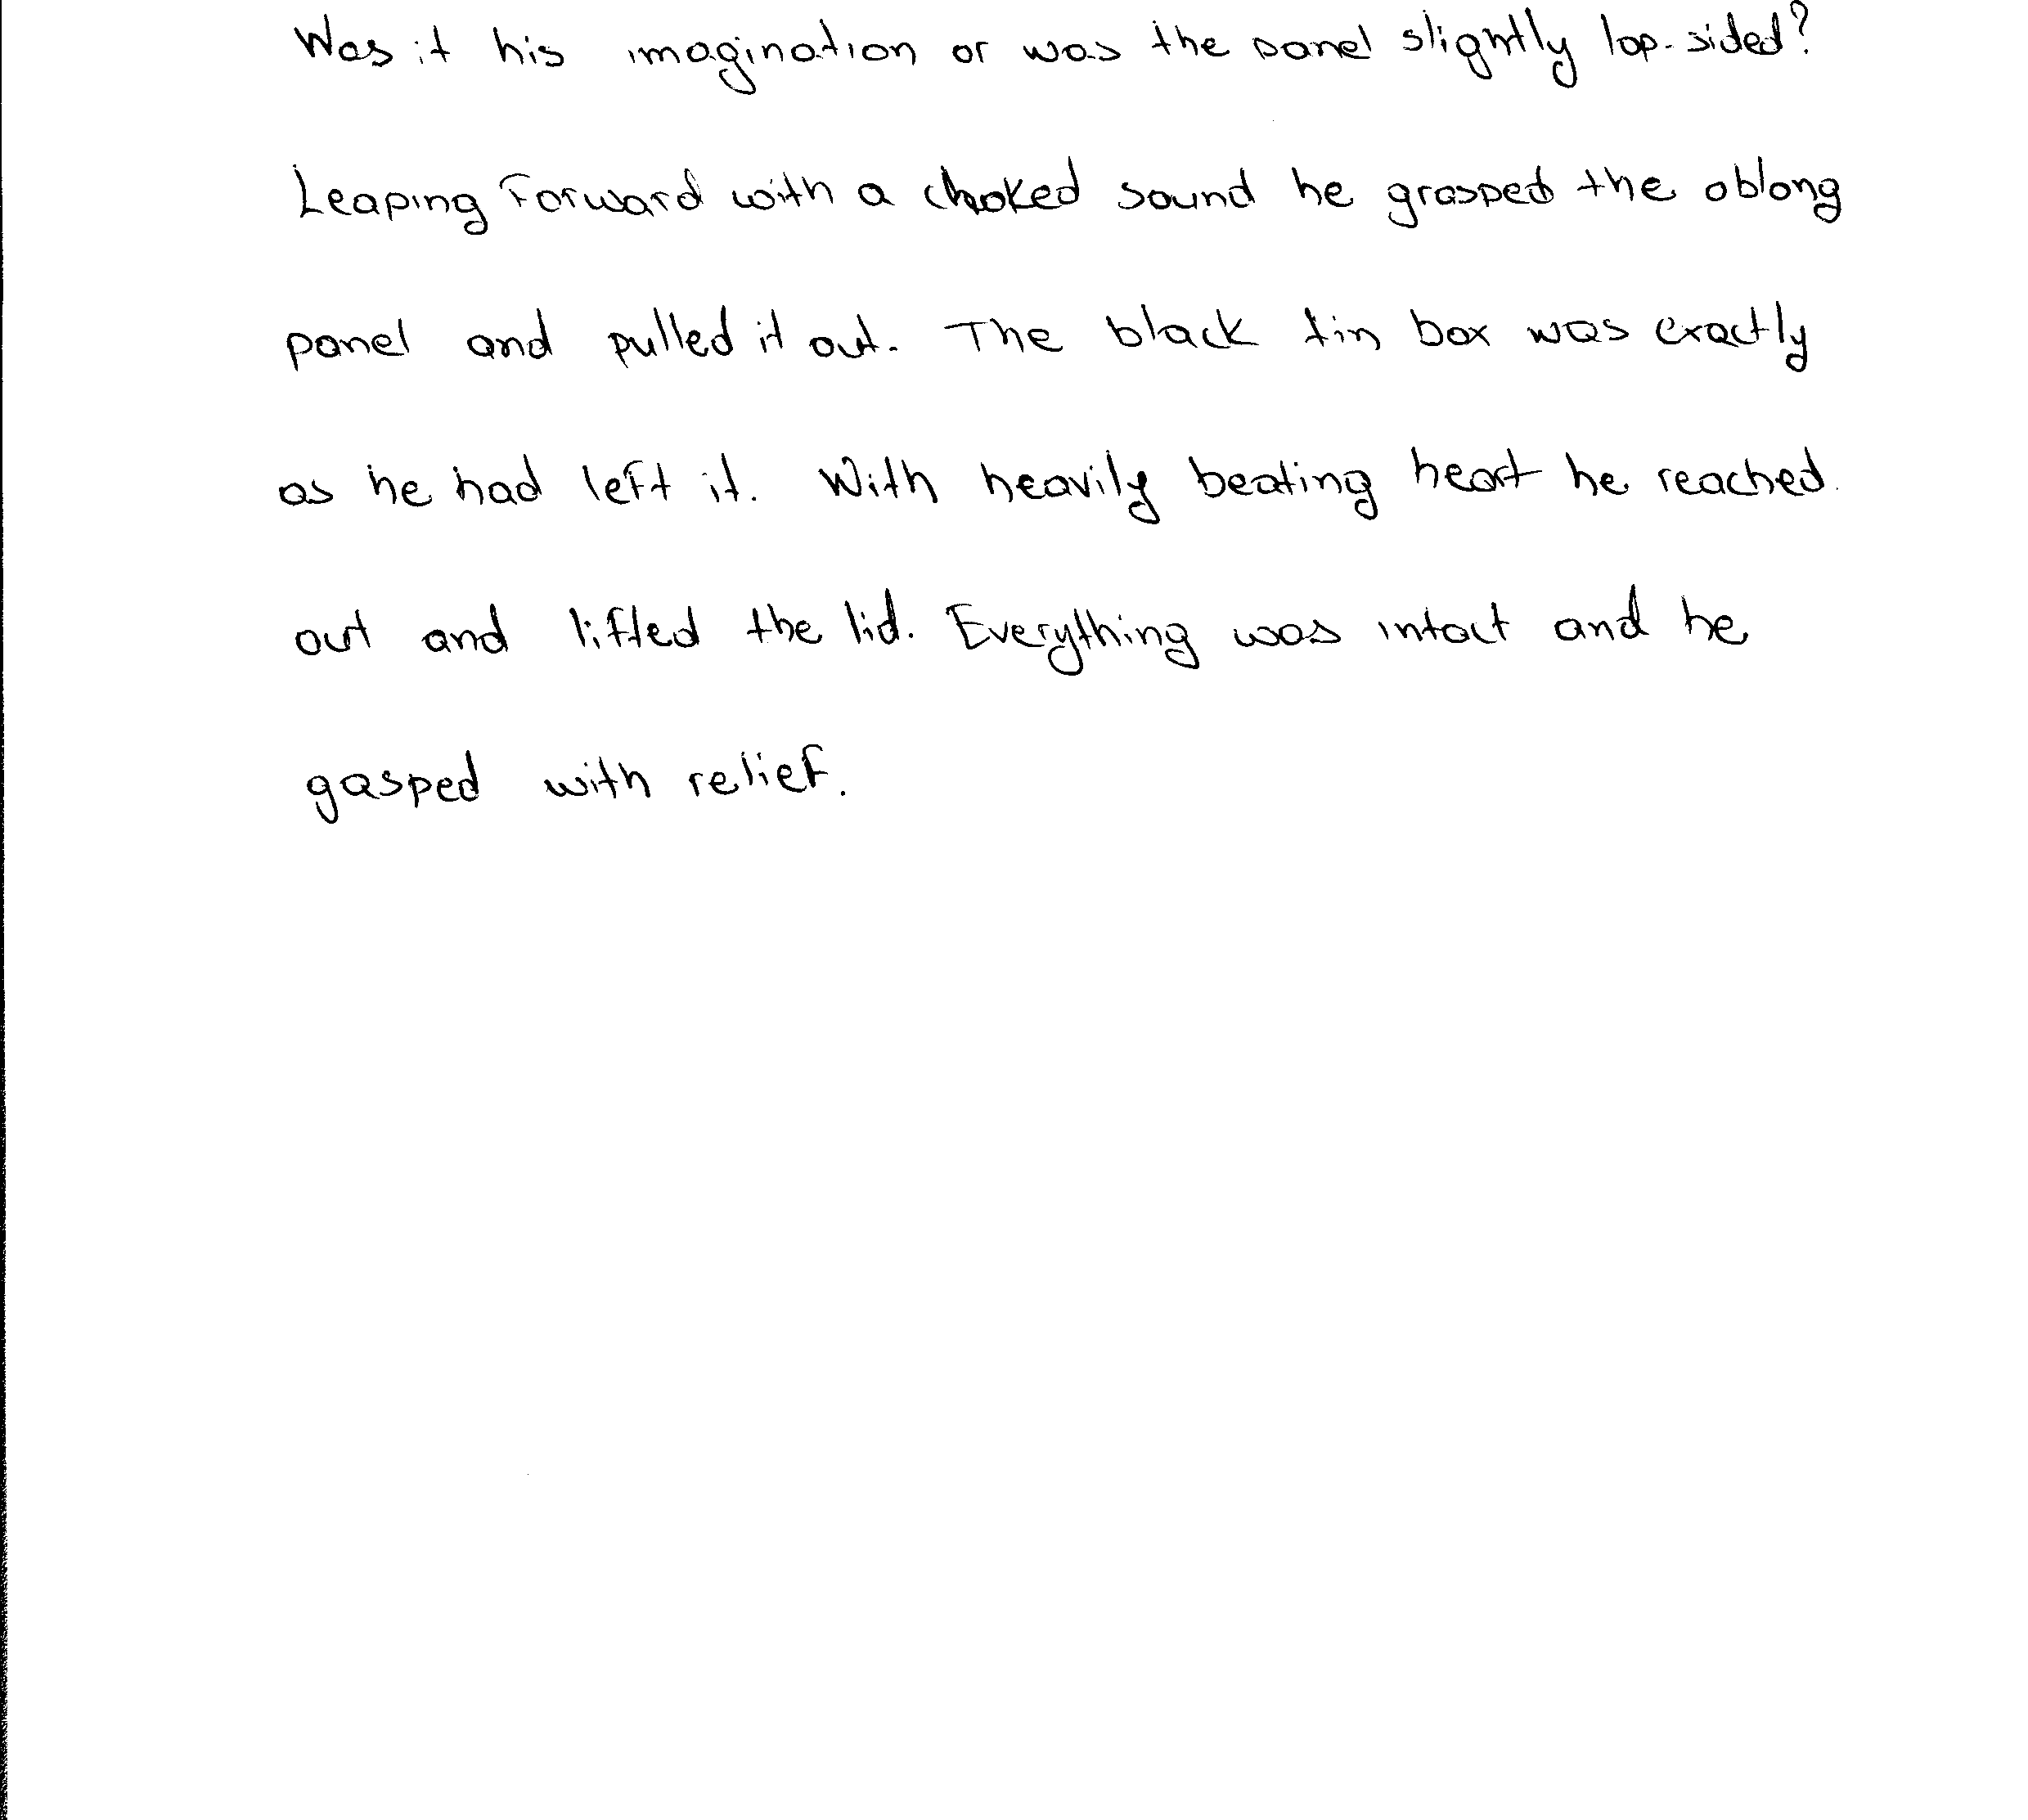 Was it his imagination or was the panel slightly lop-sided?
Leaping forward with a choked sound he grasped the oblong
panel and pulled it out. The black tin box was exactly
as he had left it. With heavily beating heart he reached
out and lifted the lid. Everything was intact and he
gasped with relief.